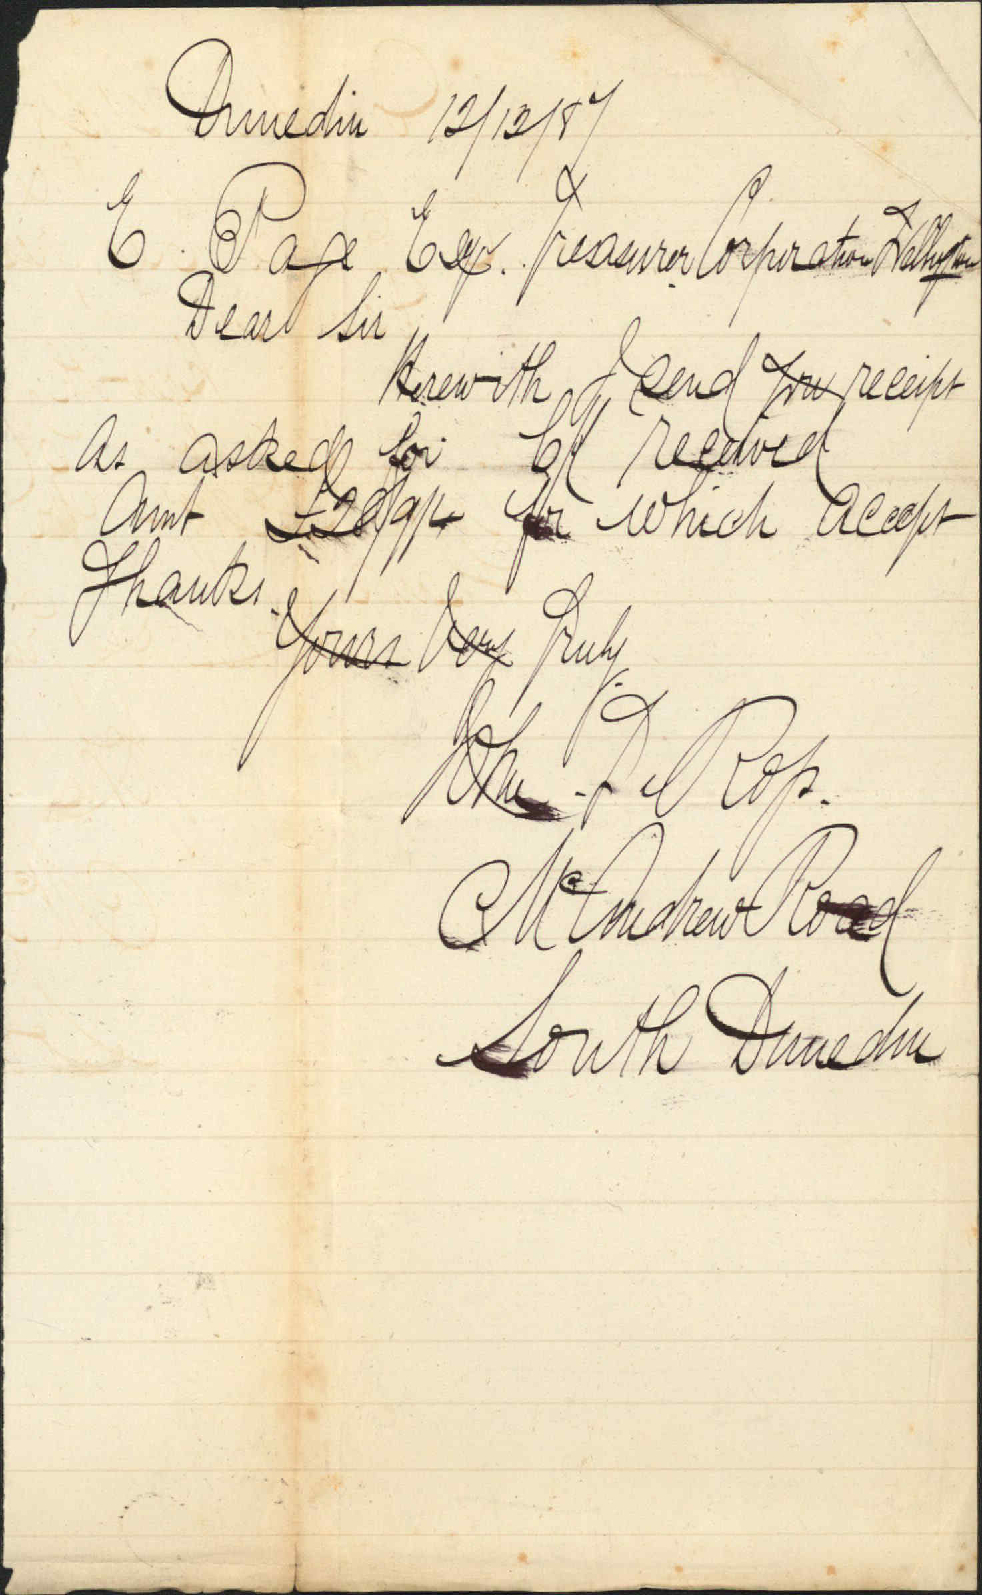 Dunedin 12/12/87
E. Page Esqr. Treasurer Corporation Wellington
Dear Sir
Herewith I send you receipt
as asked for of received
Amt £20/9/4 for which accept
Thanks.
Yours Very Truly.
John. D. Rop.
McAndrew Road
South Dunedin